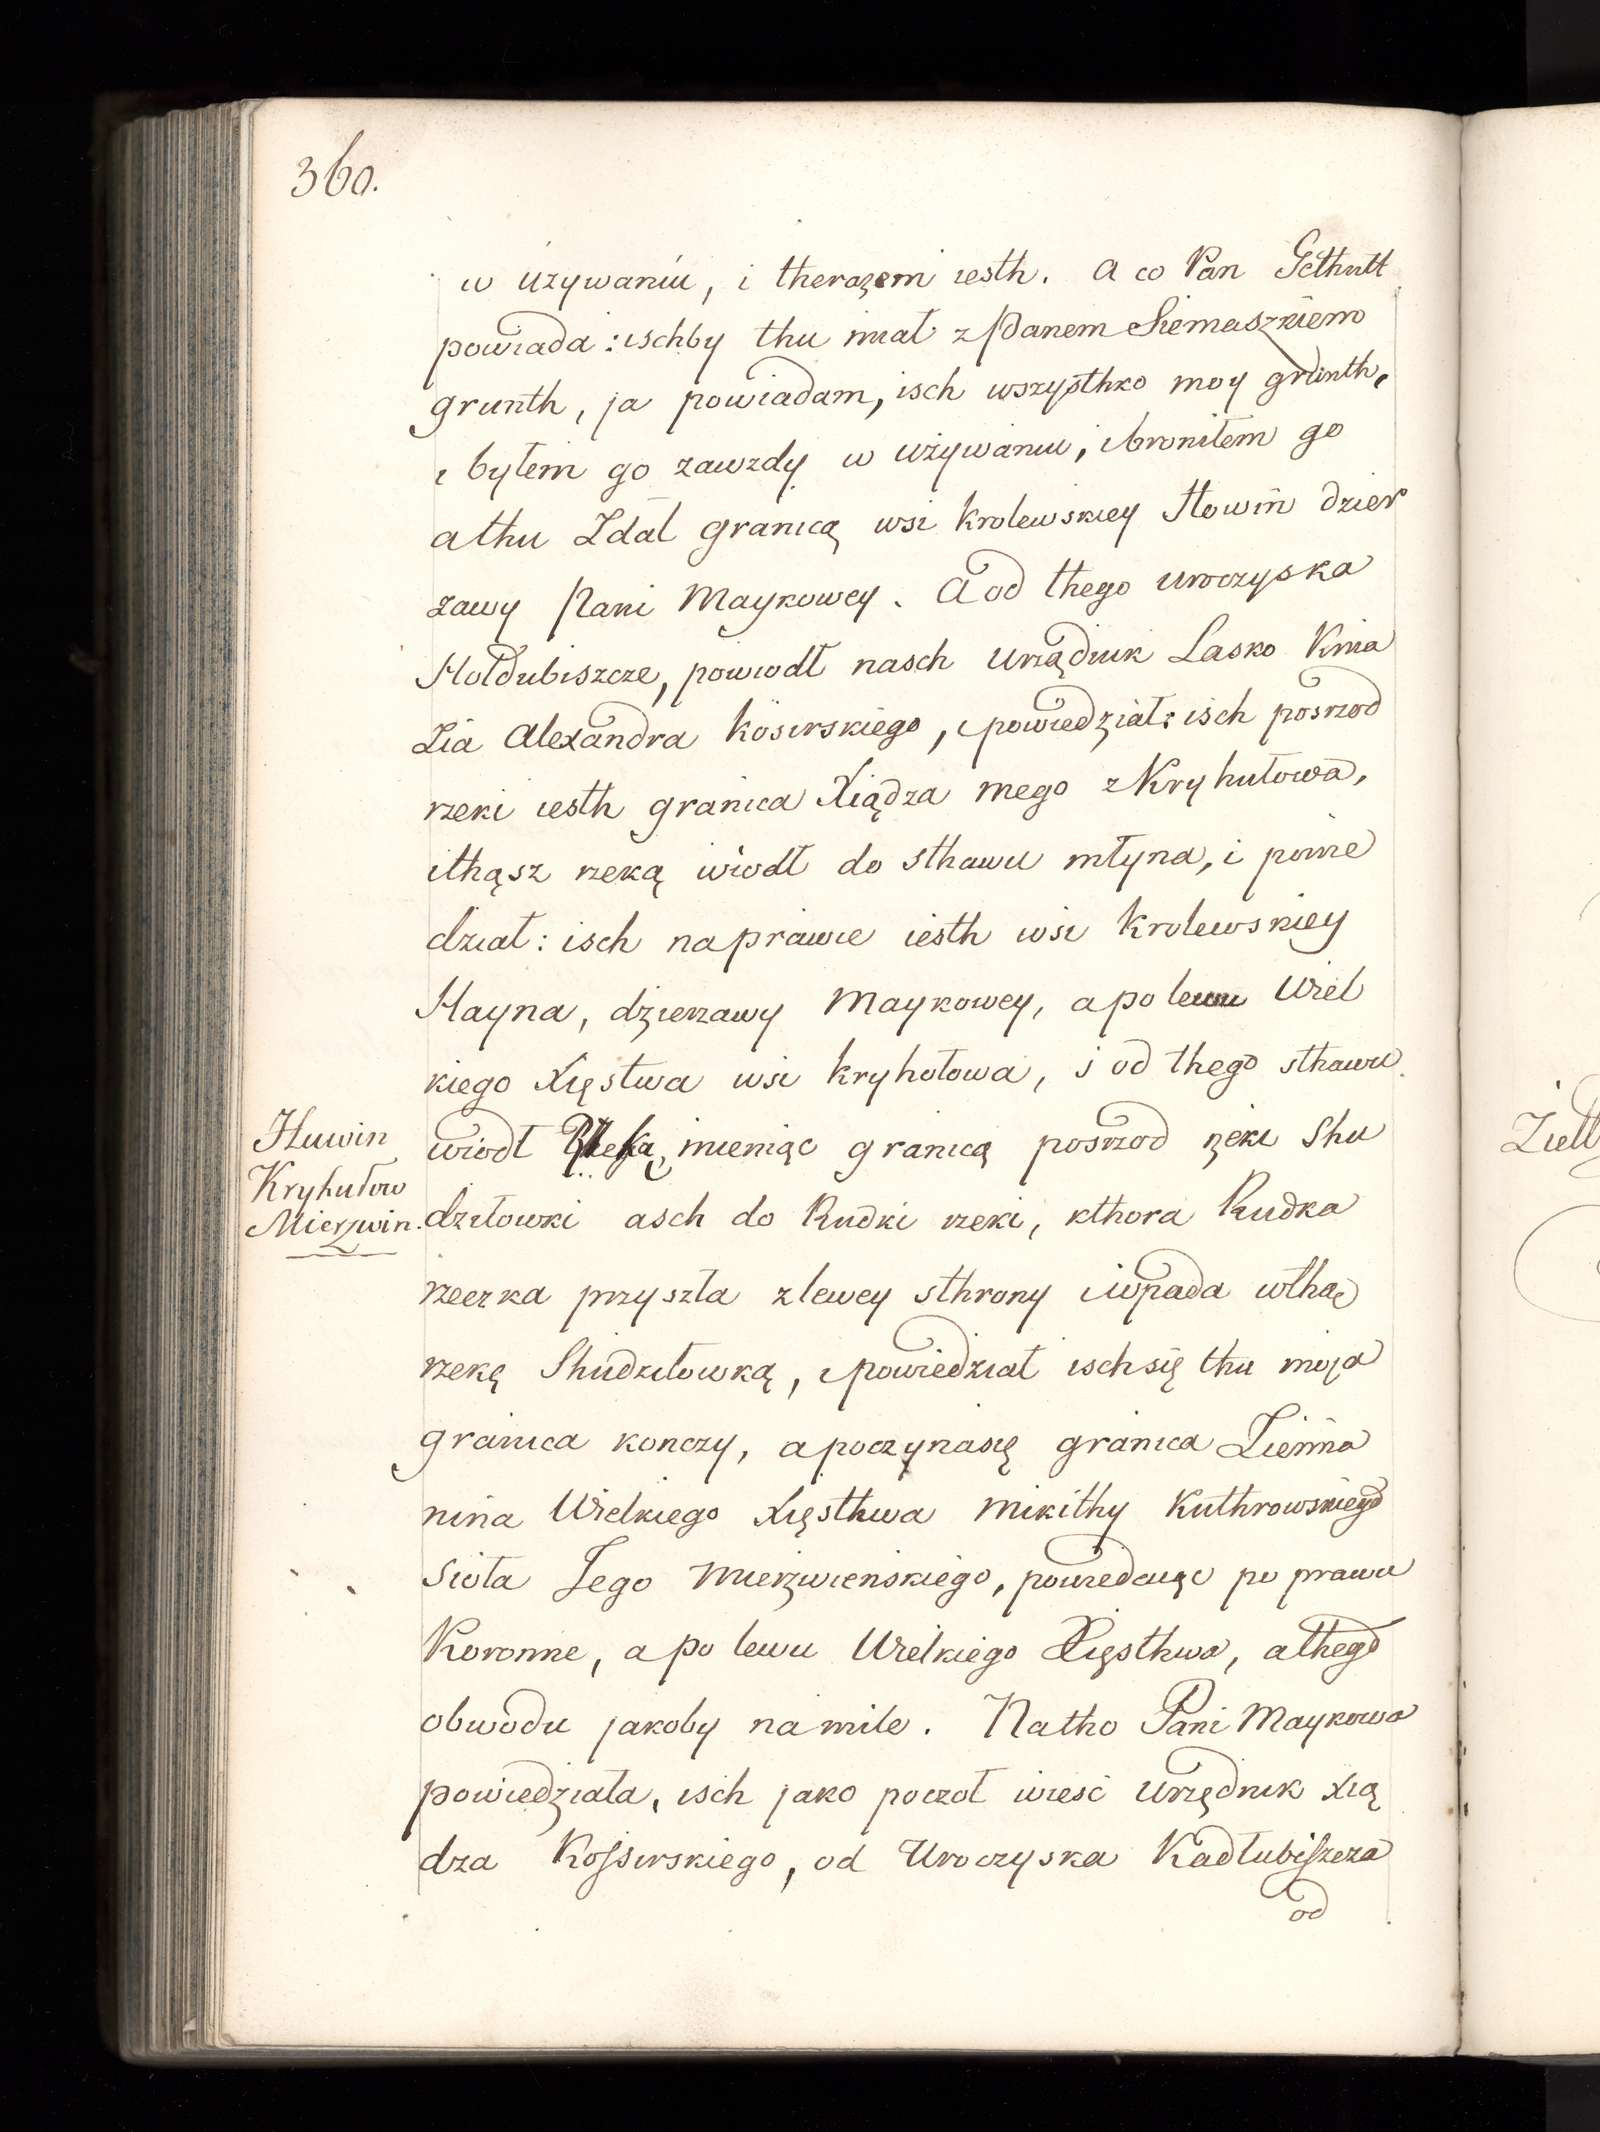 360.
w używaniu, i therazem iesth. A co Pan Gethutt
powiada: ischby thu miał z Panem Siemaszkiem
grunth, ja powiadam, isch wszysthko moy grunth,
i byłem go zawzdy w używaniu, i broniłem go
a thu Zdał granicą wsi krolewskiey Howin dzier
zawy Pani Maykowey. A od thego uroczyska
Hołdubiszcze, powiodł nasch urządnik Lasko Knia
Zia Alexandra Kosirskiego, i powiedział: isch posrzod
rzeki iesth granica Xiądza mego z Kryhułowa,
i thąsz rzeką wiodł do sthawu młyna, i powie
dział: isch naprawie iesth wsi Krolewskiey
Hayna, dzierzawy Maykowey, a po lewu Wiel
kiego Xięstwa wsi kryhołowa, i od thego sthawu
wiodł Rzeką, mieniąc granicą posrzod rzeki Shu
dziłowki asch do Rudki rzeki, kthora Rudka
rzeczka przyszła z lewey sthrony i wpada wthąc
rzekę Shudziłowką, i powiedział isch się thu moja
granica konczy, a poczynasię granica Ziemia
nina Wielkiego Xięsthwa Mikithy Kuthrowskiego
Sioła Jego Mierzwienskiego, powiedaiąc po prawu
Koronne, a po lewu Wielkiego Xięsthwa, a thego
obwodu jakoby na mile. Natho Pani Maykowa
powiedziała, isch jako poczoł wiesć Urzędnik Xią
dza Kossirskiego, od Uroczyska Kadłubiszcza
od
Huwin
Kryhułow
Mierzwin.